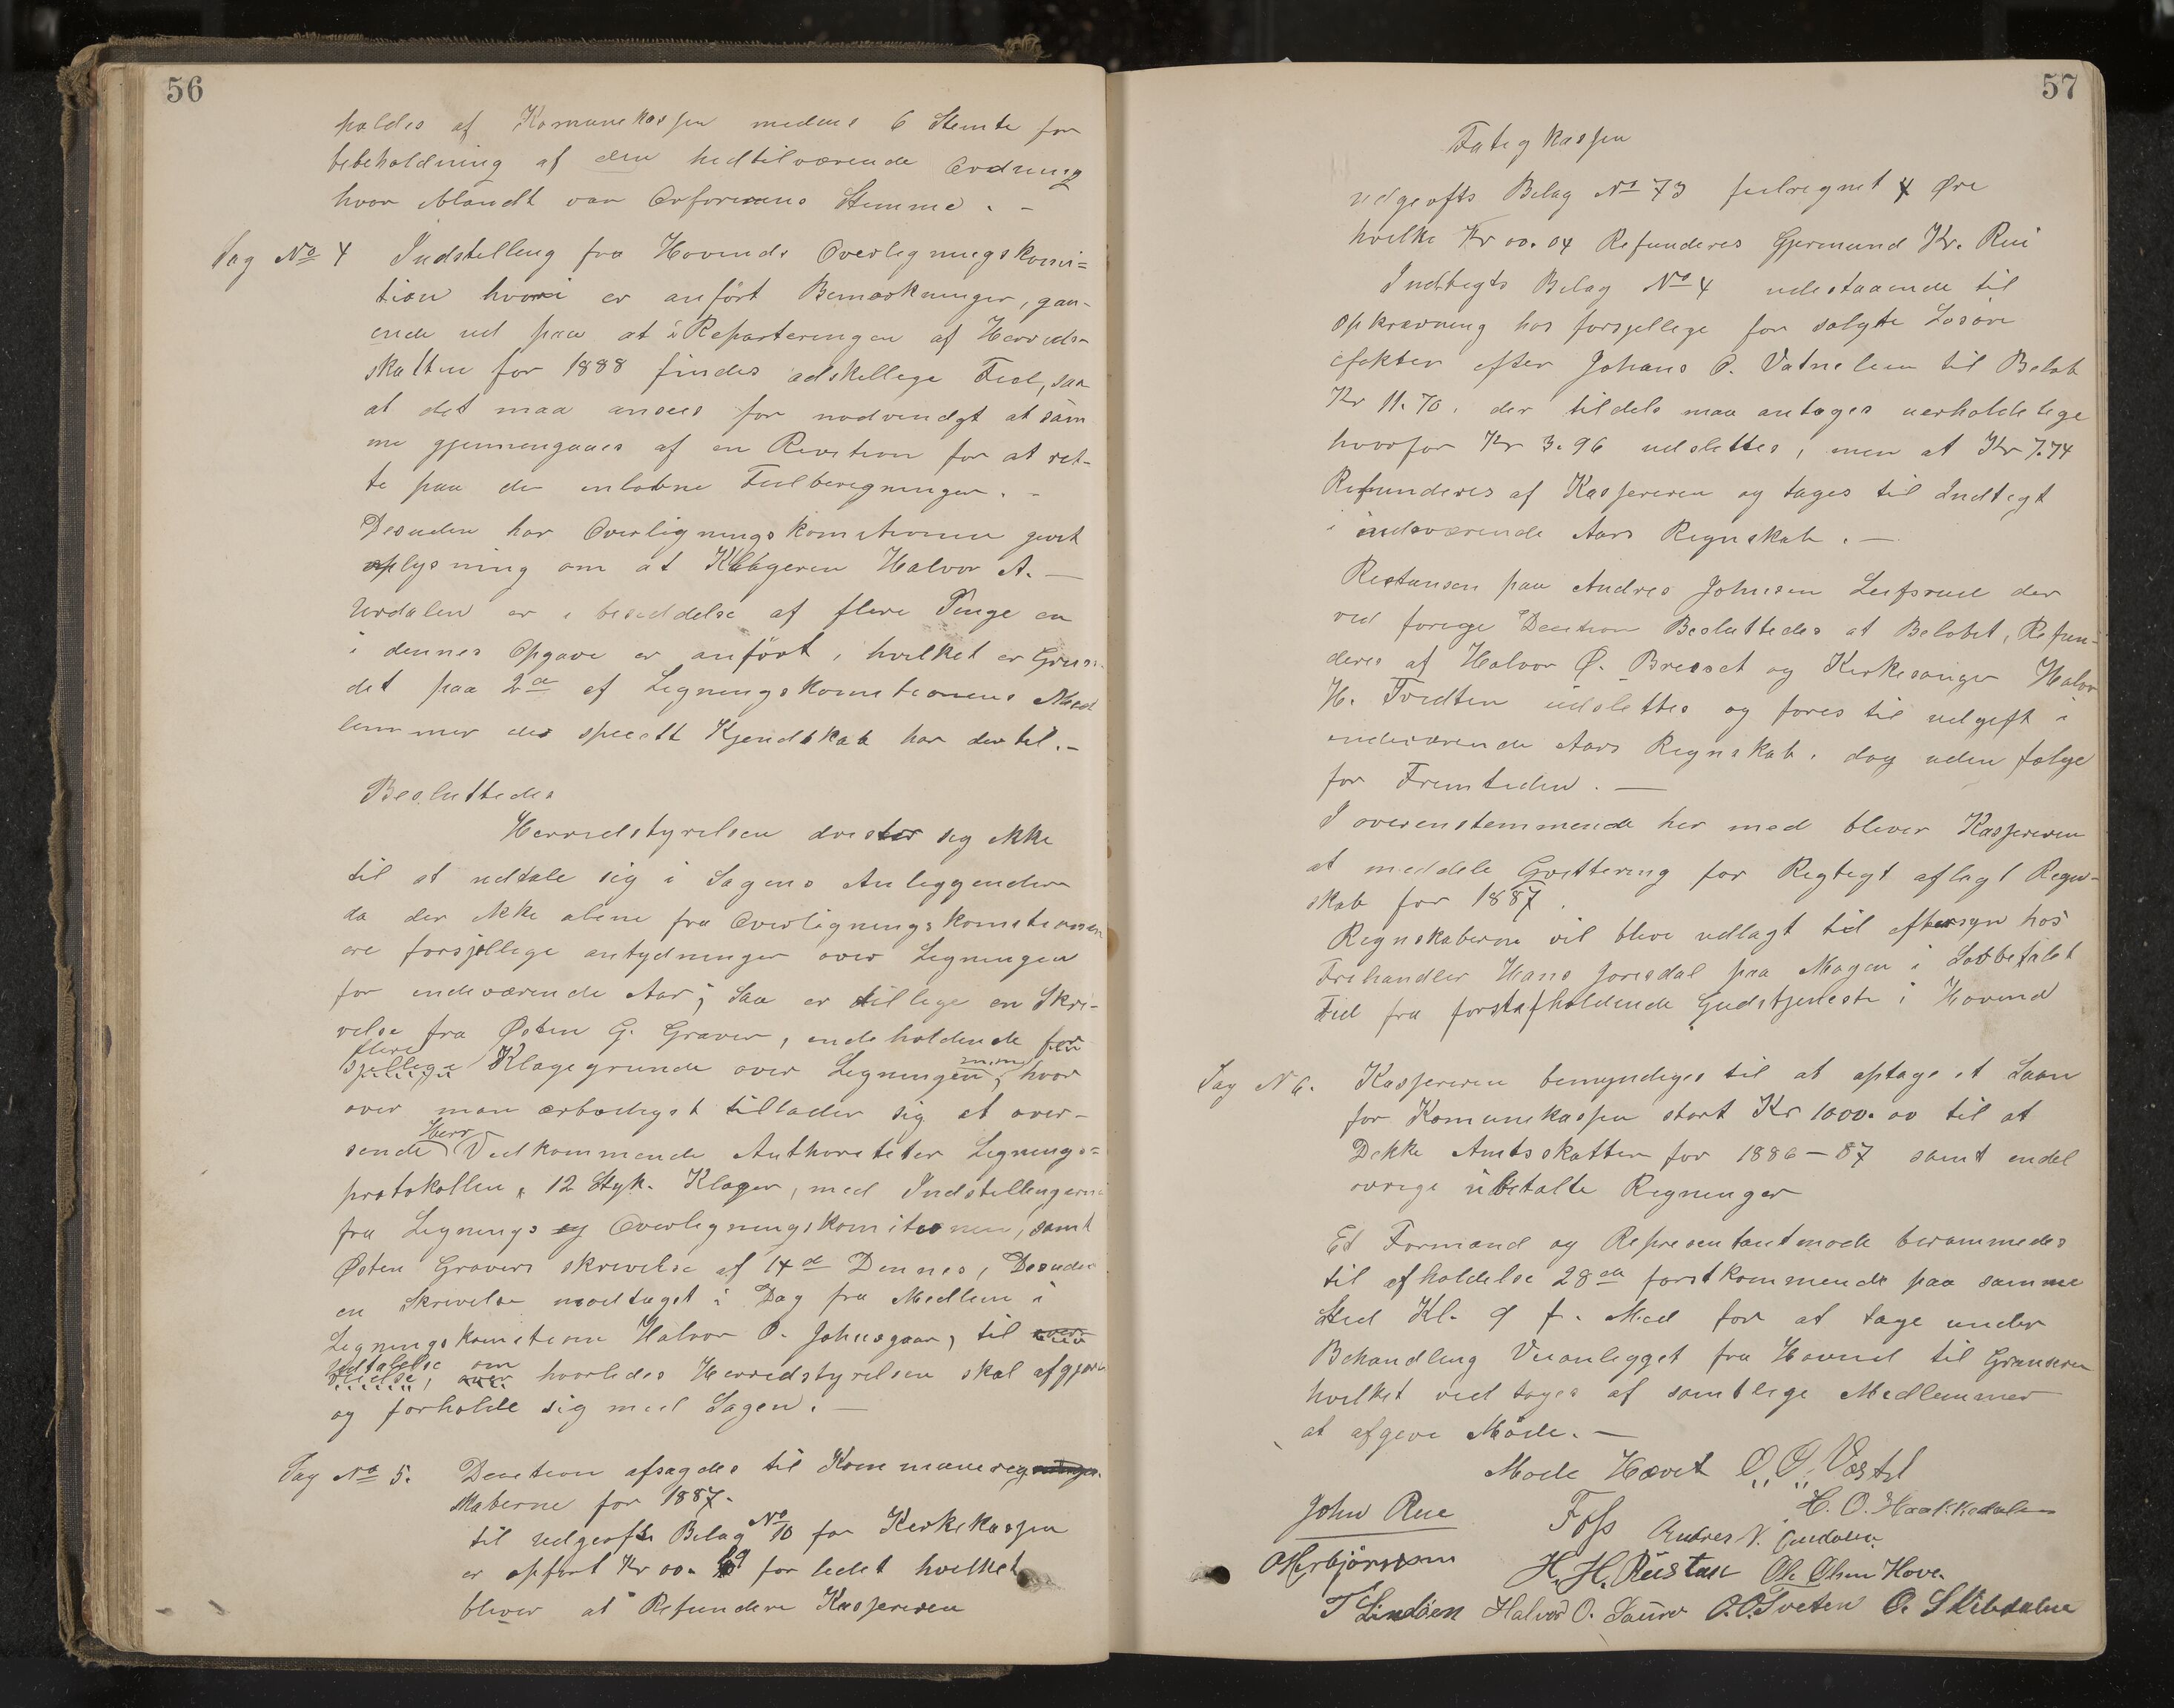 56
holdes af Komunekassen medens 6 Stemte for
bebeholdning af den hidtilværende Ordning
hvor iblandt var Orforerens Stemme. -
Sag No 4 Indstelling fra Hovinds Overligningskomi=
tion hvori er anført Bemærkninger, gaa-
ende ud paa at i Reparteringen af Herreds-
skatten for 1888 findes adskellige Feil, saa
at det maa ansees for nødvendigt at sam
me gjennemgaaes af en Revition for at ret-
te paa de inløbne Feilberegninger. -
Desuden har Overligningskomitionen givet
oplysning om at Klageren Halvor A. —
Urdalen er i besiddelse af flere Penge en
i dennes Opgave er anført, hvilket er Grun-
det paa 2de af Ligningskomitionens Med
lemmer der spceielt Kjendskab har dertil. -
Besluttedes
Herredstyrelsen drister sig ikke
til at udtale sig i Sagens Anleggender
da der ikke alene fra Overligningskomitionen
ere forsjellige antydninger over Ligningen
for indeværende Aar; Saa er tillige en Skri-
velse fra Østen G. Graver, indeholdende for
flere
sjellige Klagegrunde over Ligningen, hvor
over man ærbødigst tillader sig at over-
Herr
sende Vedkommende Authoriteter Lignings=
protokollen, 12 Styk. Klager, med Indstellingerne
fra Lignings og Overligningskomitionen, samt
Østen Gravers skrivelse af 14de Dennes, Desuden
en Skrivelse modtaget i Dag fra Medlem i
Ligningskomitionen Halvor O. Johnsgaar, til over
Udtalelse om
veielse, over hvorledes Herredstyrelsen skal afgjøre
og forholde sig med Sagen. —
Sag No 5. Decition afsagdes til Kommunereg
skaberne for 1887.
til Udgivfts Bilag No 10 for Kirkekassen
er opført Kr 00. for lidet hvilket
bliver at Refundere Kassereren
57
Fatigkassen
udgivfts Bilag No 73 feilregnet 4 Øre
hvilke Kr 00.04 Refunderes Gjermund Kr. Rui
Indtegts Bilag No 4 udestaaende til
opkrævning hos forsjellige for solgte Løsøre
efekter efter Johans O. Vatnelien til Beløb
Kr 11.70, der tildels maa antages uerholdelige
hvorfor Kr 3.96 udslettes, men at Kr 7.74
Refunderes af Kassereren og tages til Indtegt
i indeværende Aars Regnskab. —
Restansen paa Andres Johnsen Leifsrud der
ved forrige Decition Besluttedes at Beløbet, Refun-
deres af Halvor Ø. Bresset og Kirkesanger Halvor
H. Tvedten udslettes og føres til udgift i
indeværende Aars Regnskab. dog uden følge
for Fremtiden. —
I overenstemmende her med bliver Kassereren
at meddele Qvittering for Rigtigt aflagt Regn-
skab for 1887.
Regnskaberne vil blive udlagt til eftersyn hos
Frihandler Hans Jorisdal paa Mogen i Lovbefalet
Tid fra førstafholdende Gudstjeneste i Hovind
Sag N 6. Kassereren bemyndiges til at optage et Laan
for Komunekassen stort Kr 1000.00 til at
Dekke Amtsskatten for 1886—87 samt endel
øvrige ubetalte Regninger
Et Formand og Representantmøde berammedes
til afholdelse 28de førstkommende paa samme
Sted Kl. 9 f. Mid for at tage under
Behandling Veianlegget fra Hovind til Grænsen
hvilket vedtages af samtlige Medlemmer
at afgive Møde. —
Møde Hævet O. O. Væstel
John Rue Foss H. O. Haakkedalen
Andres N.
H. H. Rustan Ole Olsen Hove.
T Lindsen Halvor O. O.O. Tveten O. Skibdalen